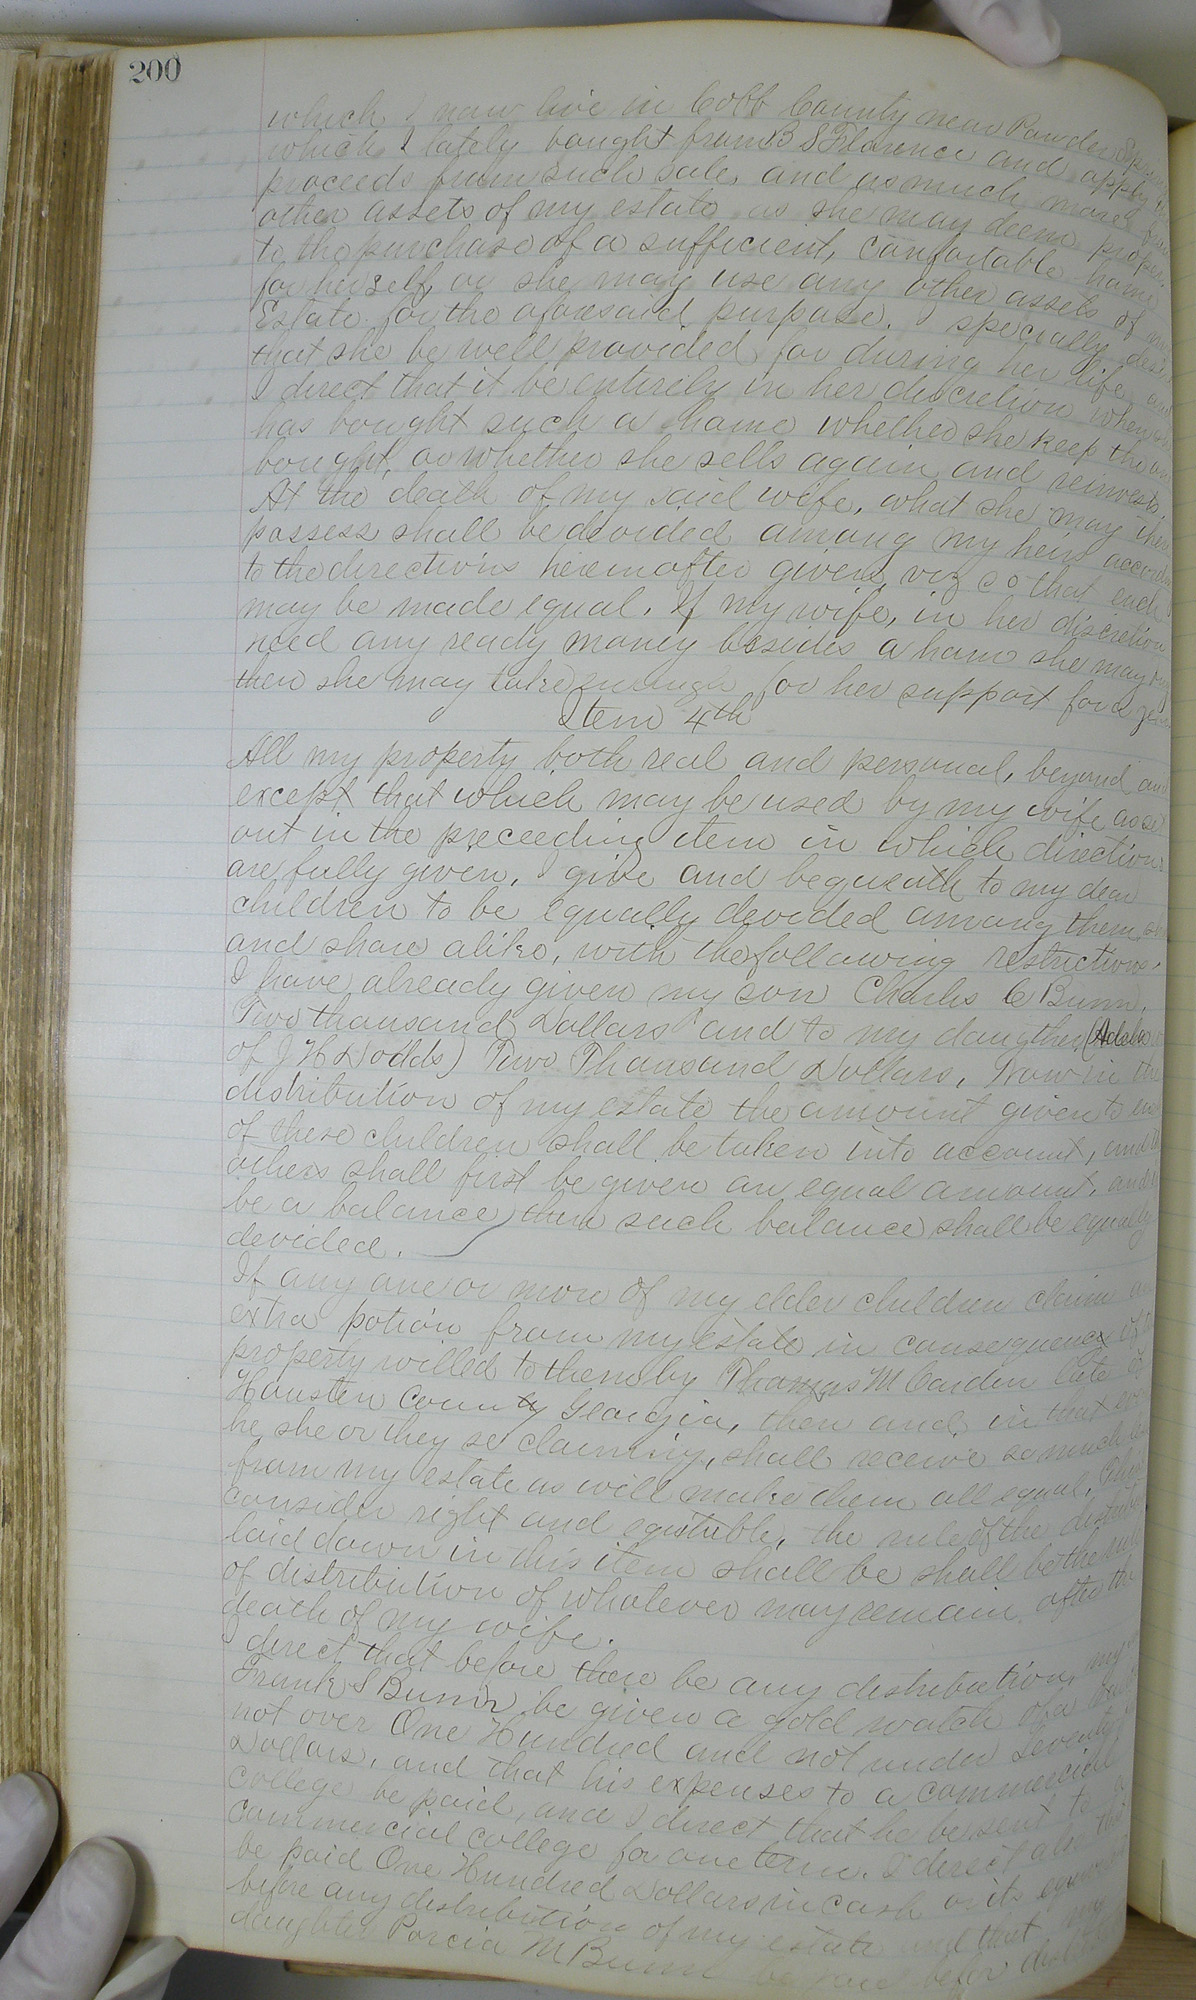 200
which I now live in Cobb County near Powder Springs
which I lately bought from B S Florence and apply the
proceeds from such sale, and as much more from
other assets of my estate as she may deem proper
to the purchase of a sufficient, comfortable home
for herself, or she may use any other assets of my
Estate for the aforesaid purpose. I specially desire
that she be well provided for during her life, and
I direct that it be entirely in her discretion when she
has bought such a home whether she keep the one
bought, or whether she sells again and reinvests.
At the death of my said wife, what she may then
possess shall be devided among my heirs according
to the directions hereinafter given, viz so that each
may be made equal. If my wife, in her discretion
need any ready money besides a home she may
then she may take enough for her support for a year
Item 4th
All my property both real and personal, beyond and
except that which may be used by my wife as set
out in the preceeding item in which directions
are fully given, I give and bequeath to my dear
children to be equally devided among them, share
and share alike, with the following restrictions.
I have already given my son Charles C Bunn,
Two thousand Dollars and to my daugther (Ada
of J H Dodds) Two Thousand Dollars. Now in the
distribution of my estate the amount given to
of these children shall be taken into account, and the
others shall first be given an equal amount, and if
be a balance, then such balance shall be equally
devided.
If any one or more of my elder children claim an
extra potion from my estate in consequence of
property willed to them by Thomas M Carden late of
Housten County Georgia, then and in that event
he, she or they so claiming, shall receive so much less
from my estate as will make them all equal. This I
consider right and equitable, the rule of the distribution
laid down in this item shall be shall be the rule
of distribution of whatever may remain after the
death of my wife.
I direct that before there be any distribution, my
Frank S Bunn be given a gold watch of a value
not over One Hundred and not under Seventy
Dollars, and that his expenses to a commercial
college be paid, and I direct that he be sent to a
commercial college for one term. I direct also that
be paid One Hundred Dollars in cash or its equivalent
before any distribution of my estate and that my
daughter Porcia M Bunn be